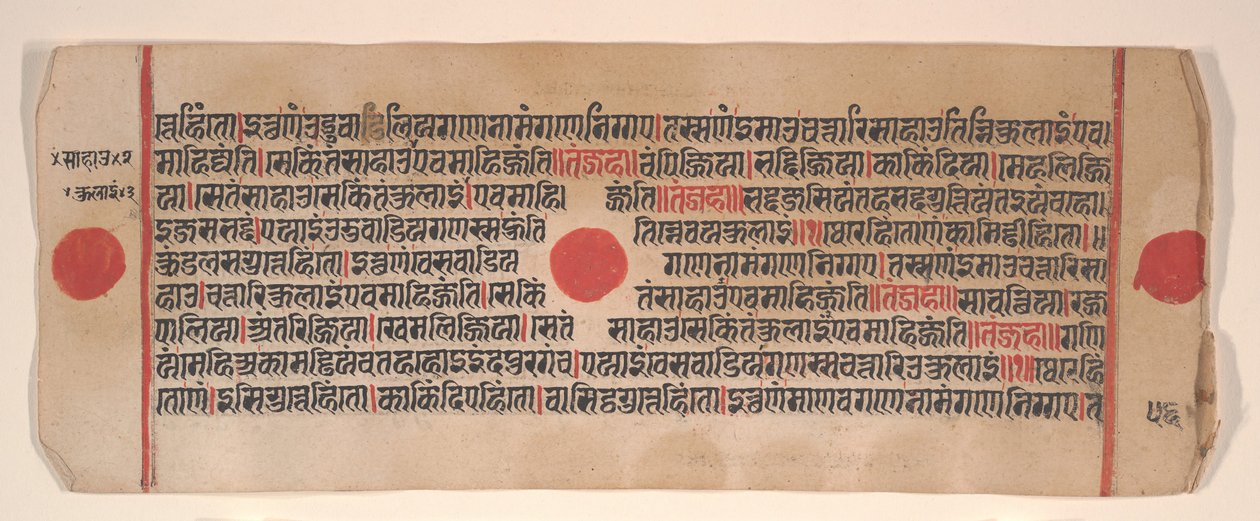 त्तेहिंतो।इत्थणंउडुवाडिलियगणेनामंगणेनिग्गए।तस्सणंइमाउचत्तारिसाहाउतिन्निकुलाइंएवा
माहिद्यंति।सेकिंतंसाहाउएवमाहिज्जंति॥तंजहा॥चंपिज्जिया।भद्दिज्जिया।काकंदिया।मेहलिज्जि
या।सेतंसाहाउसेकिंतंकुलाइं।एवमाहि। ज्जंति॥तंजहा॥भद्दजसियंतहभद्दगुत्तियंतइयंचहो।
इजसभद्दं।एयाइंउडुवाडियगणस्सहुंति तिन्नेवयकुलाइ॥१॥थेरेहिंतोणंकामिड्ढीहिंतो।॥
कुडलसगुत्तेहिंतो।इत्थणंवेसवाडिय गणेनामंगणेनिग्गए।तस्सणंइमाउचत्तारिसा
हाउ।चत्तारिकुलाइंएवमाहिज्जंति।सेकिं तंसाहाउएवमाहिज्जंति॥तंजहा॥सावत्थिया।रज्ज
पालिया।अंतरिज्जिया।खेमलिज्जिया।सेतं साहाउसेकिंतंकुलाइंएवमाहिज्जंति॥तंजहा॥गणि
यंमेहियकामड्डियंचतहहोइइंदपुरगंच।एयाइंवेसवाडियगणस्सचत्तारिउकुलाइं॥१॥थेरेहिं
तोणं।इसिगुत्तेहिंतो।काकंदिएहिंतो।वासिट्ठगुत्तेहिंतो।इत्थणंमाणवगणेनामंगणेनिग्गए।त
×साहाउ×२
×कुलाइं×३
५६